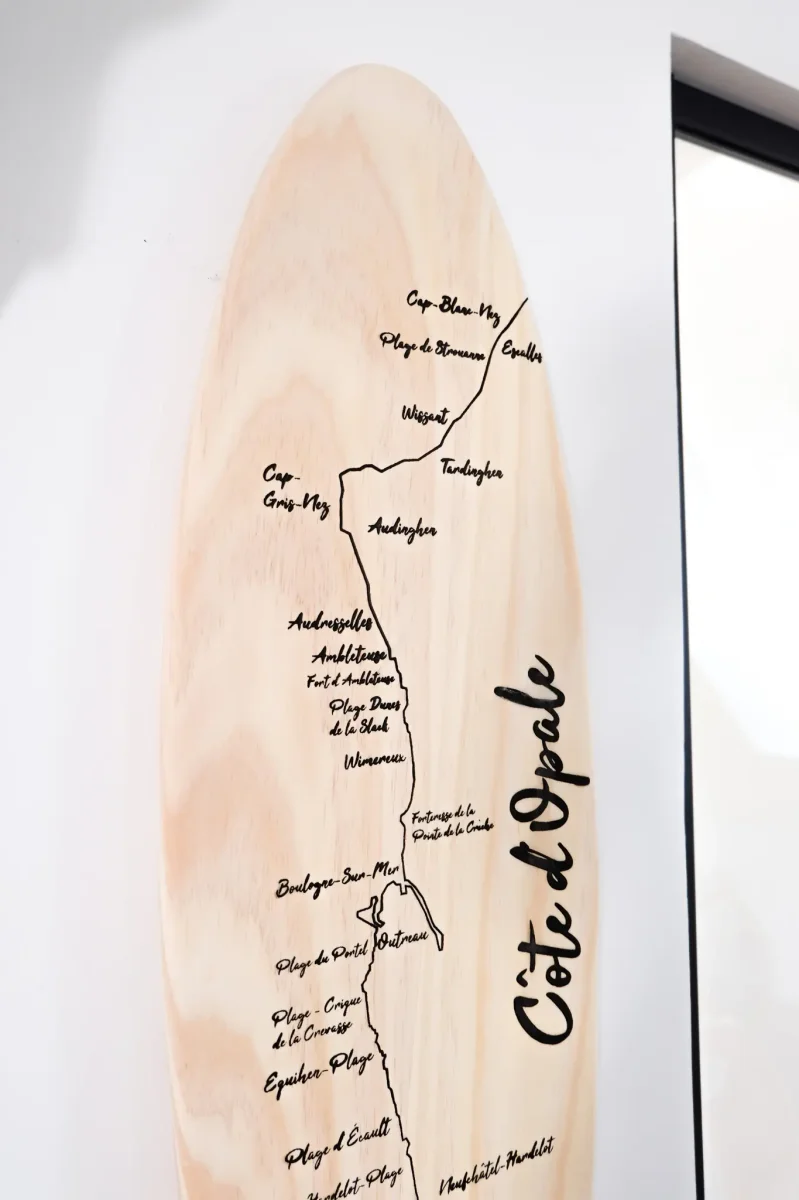 Cap-Blanc-Nez
Plage de Strouanne
Escalles
Wissant
Tardinghen
Cap-
Gris-Nez
Audinghen
Audresselles
Ambleteuse
Fort d'Ambleteuse
Plage Dunes
de la Slack
Wimereux
Forteresse de la
Pointe de la Crèche
Boulogne-Sur-Mer
Outreau
Plage du Portel
Plage - Crique
de la Crevasse
Équihen-Plage
Plage d'Écault
Hardelot-Plage
Neufchâtel-Hardelot
Côte d'Opale